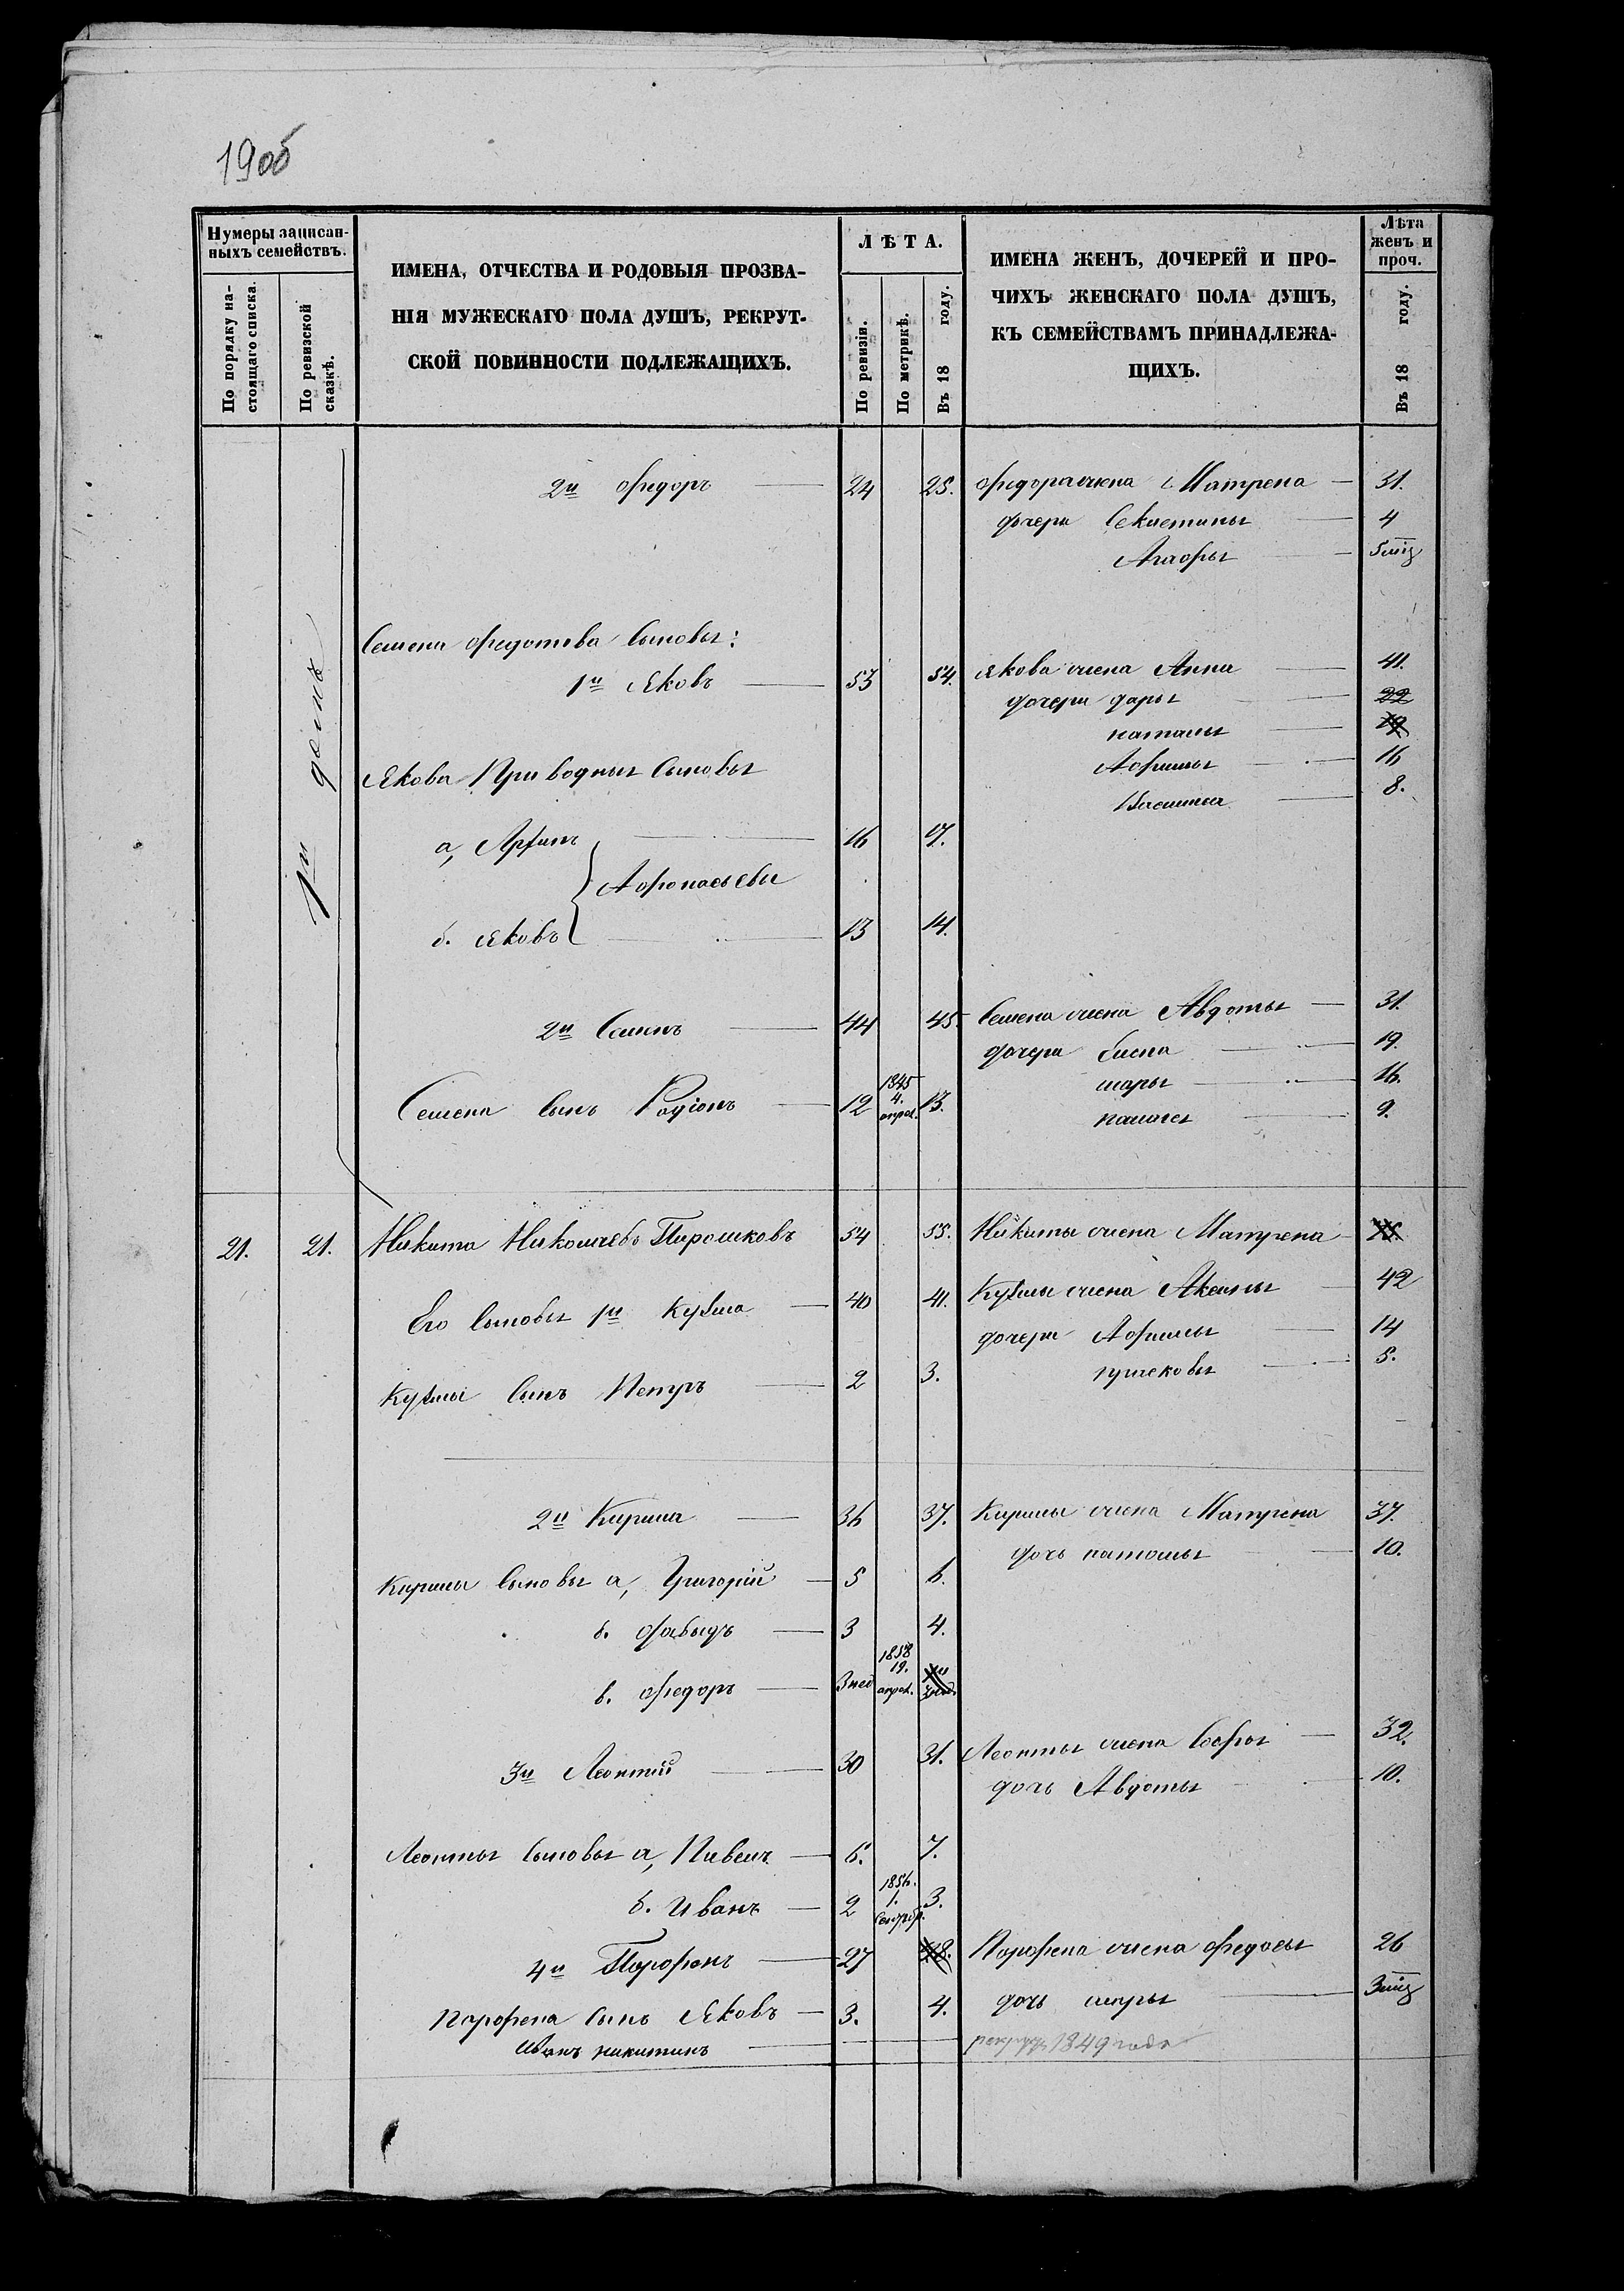 190об
Нумеры записан-
ныхъ семействъ.
По порядку на-
стоящаго списка.
По ревизской
сказкѣ.
ИМЕНА, ОТЧЕСТВА И РОДОВЫЯ ПРОЗВА-
НІЯ МУЖЕСКАГО ПОЛА ДУШЪ, РЕКРУТ-
СКОЙ ПОВИННОСТИ ПОДЛЕЖАЩИХЪ.
ЛѢТА.
По ревизіи.
По метрикѣ.
Въ 18 году.
ИМЕНА ЖЕНЪ, ДОЧЕРЕЙ И ПРО-
ЧИХЪ ЖЕНСКАГО ПОЛА ДУШЪ,
КЪ СЕМЕЙСТВАМЪ ПРИНАДЛЕЖА-
ЩИХЪ.
Лѣта
женъ и
проч.
Въ 18 году.
2й Федоръ 24 25. Федора жена Матрена 31.
дочери 4
5 мѣц
Семена Федотова сыновья:
1й Яковъ 53 54. Якова жена Анна 41.
дочери Дарья 22
Наталья
Якова Приводныя сыновья Афимья 16
Василиса 8.
а, 16 17.
Афонасьевы
б. Яковъ 13 14.
2й Семенъ 44 45. Семена жена Авдотья 31.
дочери 19.
Марья 16.
Семена сынъ Родіонъ 12 1845 4. апрел. 13.
9.
21. 21. Никита Пирошковъ 54 55. Никиты жена Матрена
Его сыновья 1й Кузьма 40 41. Кузьмы жена Аксинья 42
дочери Афимья 14
Кузьмы сынъ Петръ 2 3.
5.
2й Кирила 36 37. Кирилы жена Матрена 37.
дочь Наталья 10.
Кирилы сыновья а, Григорій 5 6.
б. Давыдъ 3 4.
в. Федоръ 3 нед 1858 19. апрел.
3й Леонтій 30 31. Леонтья жена Софья 32.
дочь Авдотья 10.
Леонтья сыновья а, Павелъ 6. 7.
б. Иванъ 2 1856. 1. сентяб. 3.
4й Парфенъ 27 28. Парфена жена Федосья 26
Парфена сынъ Яковъ 3. 4. дочь Марья 3 мѣц
Иванъ Никитинъ рекрутъ 1849 года
1й домъ